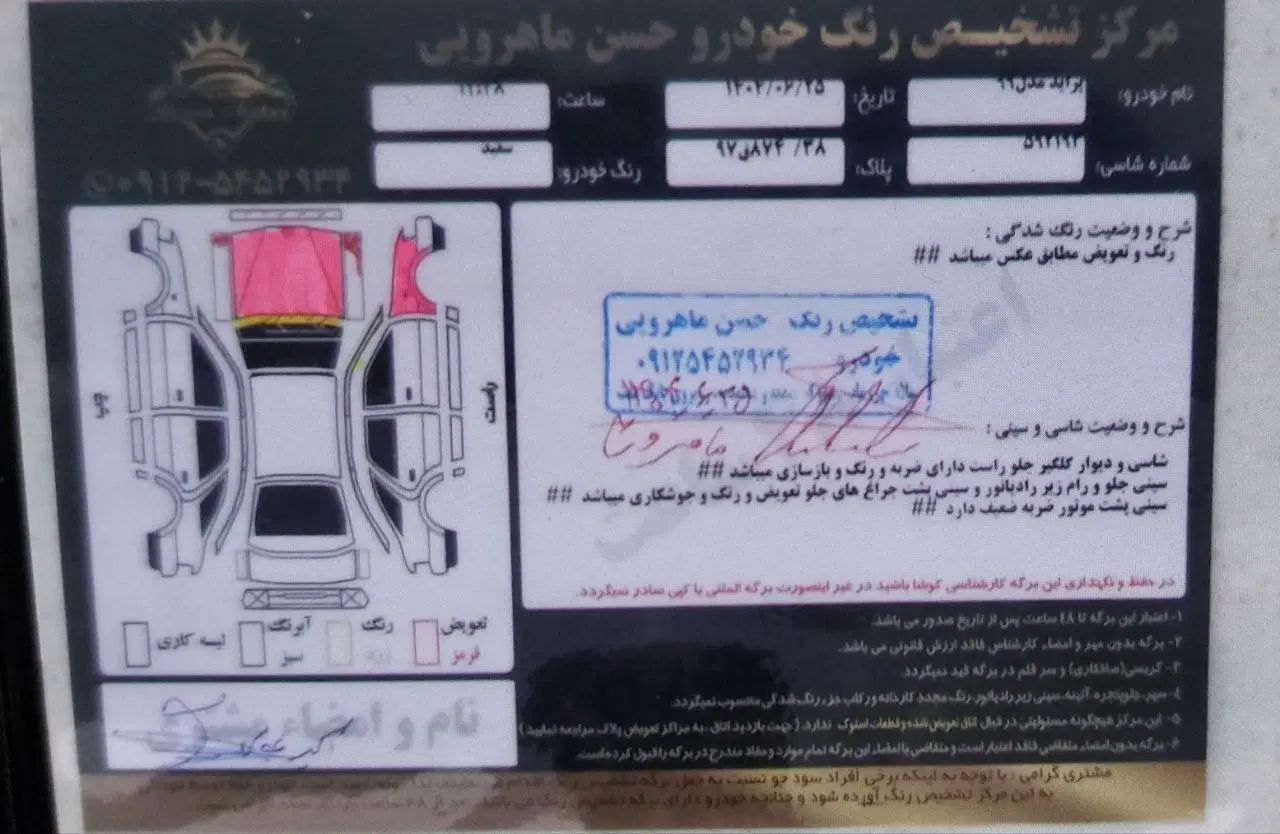 مرکز تشخیص رنگ خودرو حسن ماهرویی
نام خودرو: پراید مدل ۹۹ تاریخ: ۱۴۰۲/۰۶/۲۵ ساعت:
شماره شاسی: ۵۹۲۱۹۲ پلاک: ۳۸/ ۸۷۴ق۹۷ رنگ خودرو: سفید
۰۹۱۲-۵۴۵۲۹۳۴
شرح و وضعیت رنگ شدگی :
رنگ و تعویض مطابق عکس میباشد ##
تشخیص رنگ حسن ماهرویی
خودرو ۰۹۱۲۵۴۵۲۹۳۴
شرح و وضعیت شاسی و سینی :
شاسی و دیوار گلگیر جلو راست دارای ضربه و رنگ و بازسازی میباشد ##
سینی جلو و رام زیر رادیاتور و سینی پشت چراغ های جلو تعویض و رنگ و جوشکاری میباشد ##
سینی پشت موتور ضربه ضعیف دارد ##
در حفظ و نگهداری این برگه کارشناسی کوشا باشید در غیر اینصورت برگه المثنی یا کپی صادر نمیگردد.
راست
چپ
تعویض رنگ آبرنگ لیسه کاری
قرمز زرد سبز
نام و امضاء مشتری
۱- اعتبار این برگه تا ٤٨ ساعت پس از تاریخ صدور می باشد.
۲- برگه بدون مهر و امضاء کارشناس فاقد ارزش قانونی می باشد.
۳- گریسی (صافکاری) و سر قلم در برگه قید نمیگردد.
٤- سپر، جلوپنجره، آئینه، سینی زیر رادیاتور، رنگ مجدد کارخانه و رکاب جزء رنگ شدگی محسوب نمیگردد.
۵- این مرکز هیچگونه مسئولیتی در قبال اتاق تعویض شده و قطعات استوک ندارد. ( جهت بازدید اتاق، به مراکز تعویض پلاک مراجعه نمایید )
۶- برگه بدون امضاء متقاضی فاقد اعتبار است و متقاضی با امضاء این برگه تمام موارد و مفاد مندرج در برگه را قبول کرده است.
مشتری گرامی : با توجه به اینکه برخی افراد سود جو نسبت به جعل برگه تشخیص رنگ
به این مرکز تشخیص رنگ آورده شود و چنانچه خودرو دارای برگه تشخیص رنگ می باشد